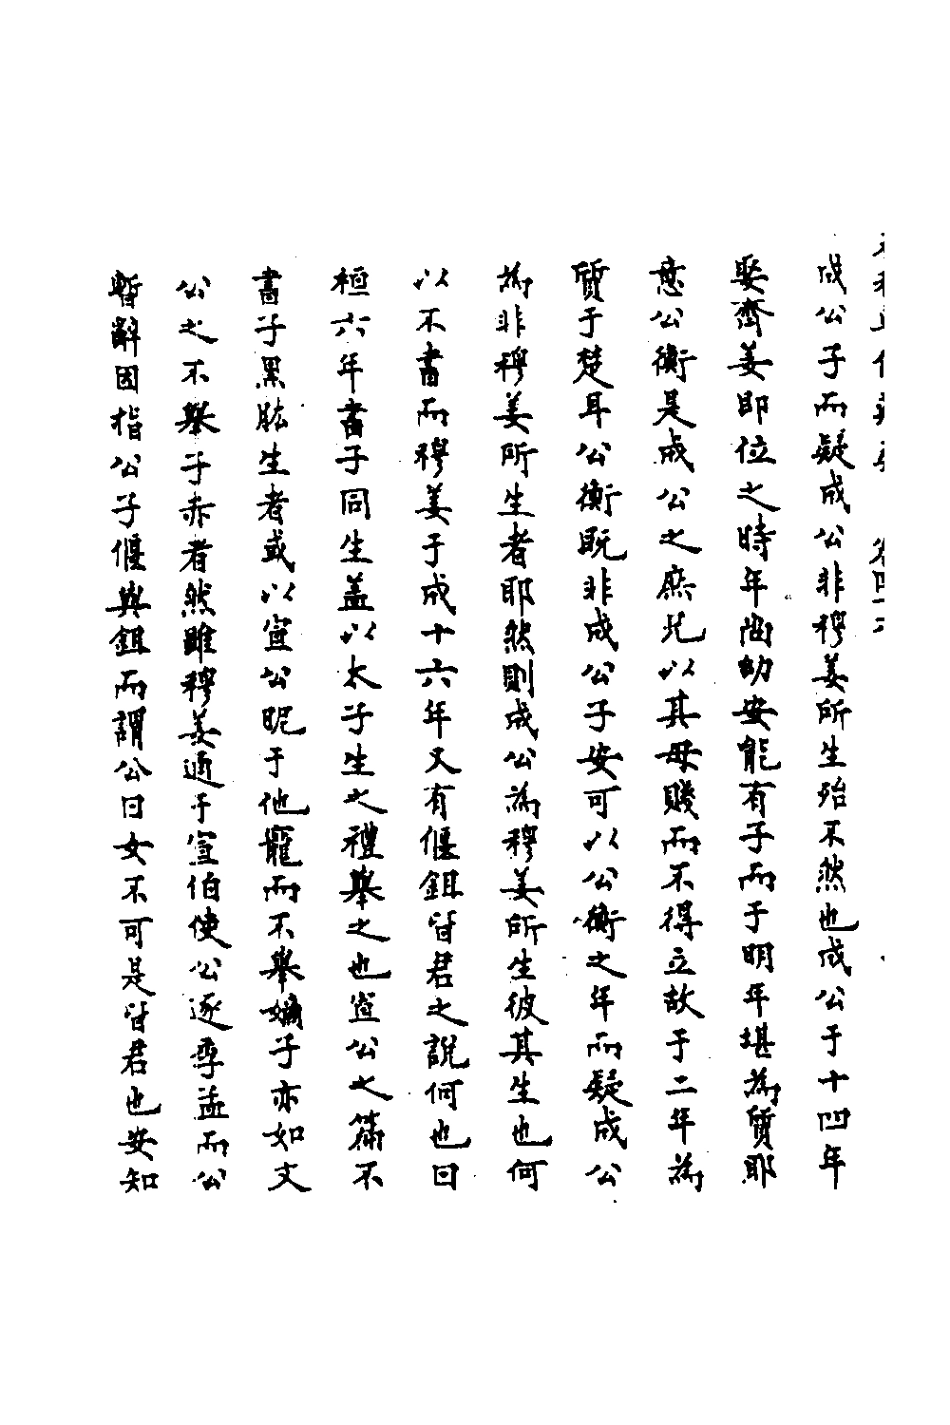 成公子而疑成公非穆姜所生殆不然也成公于十四年
娶齊姜即位之時年尚幼安能有子而于明年堪為質耶
意公衡是成公之庶兄以其母賤而不得立故于二年為
質于楚耳公衡既非成公子安可以公衡之年而疑成公
為非穆姜所生者耶然則成公為穆姜所生彼其生也何
以不書而穆姜于成十六年又有偃鉏皆君之說何也曰
桓六年書子同生盖以太子生之禮舉之也宣公之篇不
書子黑肱生者或以宣公昵于他寵而不舉嫡子亦如文
公之不舉子赤者然雖穆姜通于宣伯使公逐季孟而公
暫辭因指公子偃與鉏而謂公曰女不可是皆君也安知